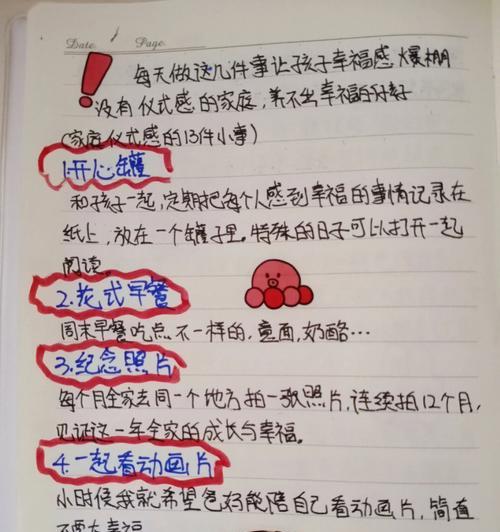 Date. Page.
每天做这几件事让孩子幸福感爆棚
没有仪式感的家庭,养不出幸福的好孩子
(家庭仪式感的13件小事)
1.开心罐
和孩子一起,定期把每个人感到幸福的事情记录在
纸上,放在一个罐子里。特殊的日子可以打开一起
阅读。
2.花式早餐
周末早餐吃点不一样的,意面,奶酪…
3.纪念照片
每个月全家去同一个地方拍一张照片,连续拍12个月,
见证这一年全家的成长与幸福。
4.一起看动画片
小时候我就希望爸妈能陪自己看动画片,简直
不要太幸福